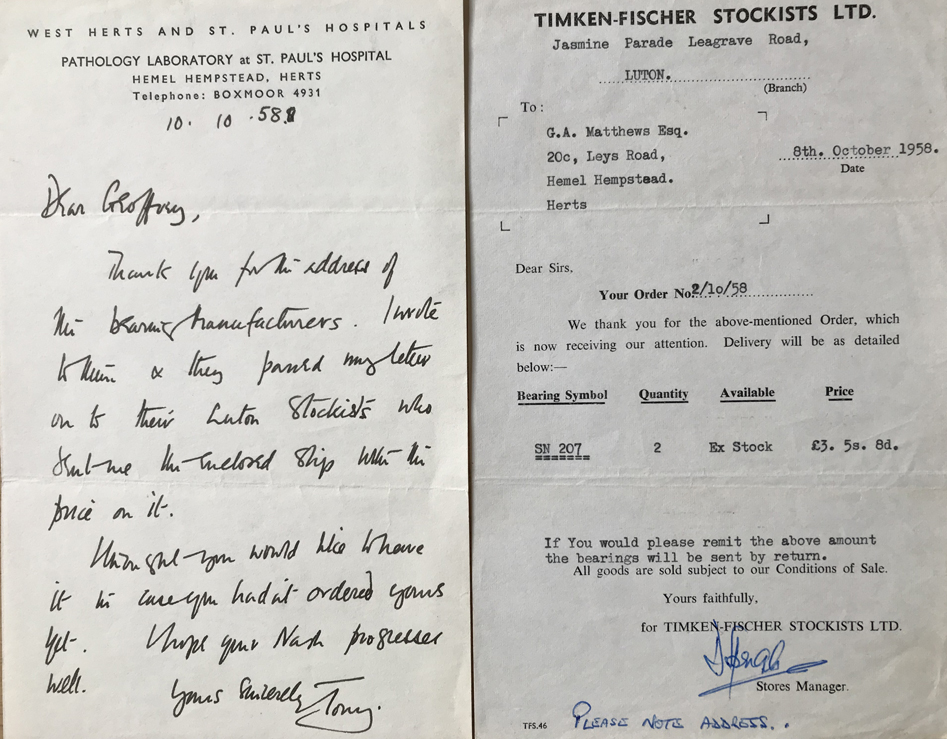 WEST HERTS AND ST. PAUL'S HOSPITALS
PATHOLOGY LABORATORY at ST. PAUL'S HOSPITAL
HEMEL HEMPSTEAD, HERTS
Telephone: BOXMOOR 4931
10. 10. 58
Dear Geoffrey,
Thank you for the address of
the bearing manufacturers. I wrote
to them & they passed my letter
on to their Luton Stockists who
sent me the enclosed slip with the
price on it.
Thought you would like to have
it in case you hadn't ordered yours
yet. I hope your Nash progresses
well.
Yours Sincerely
Tony.
TIMKEN-FISCHER STOCKISTS LTD.
Jasmine Parade Leagrave Road,
LUTON.
(Branch)
To:
G.A. Matthews Esq.
20c, Leys Road,
Hemel Hempstead.
Herts
8th. October 1958.
Date
Dear Sirs,
Your Order No. 2/10/58
We thank you for the above-mentioned Order, which
is now receiving our attention. Delivery will be as detailed
below:—
Bearing Symbol Quantity Available Price
SN 207 2 Ex Stock £3. 5s. 8d.
If You would please remit the above amount
the bearings will be sent by return.
All goods are sold subject to our Conditions of Sale.
Yours faithfully,
for TIMKEN-FISCHER STOCKISTS LTD.
Stores Manager.
TFS.46 PLEASE NOTE ADDRESS..